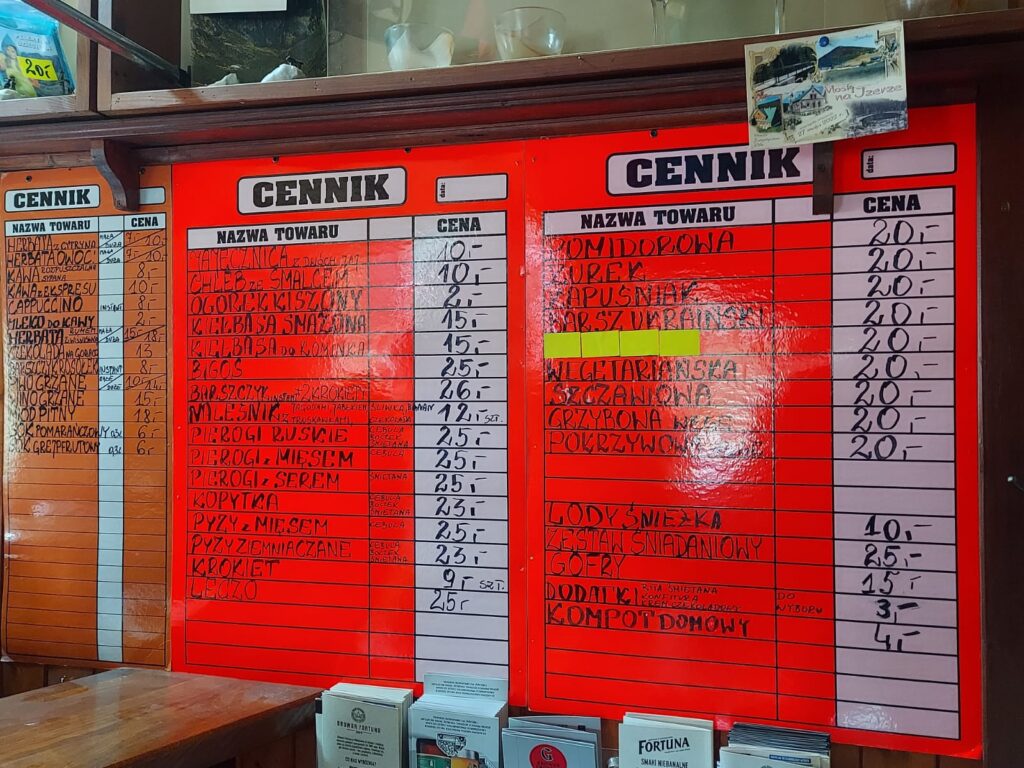 20,-
Mosk
na Jzerze
CENNIK
NAZWA TOWARU CENA
HERBATA z CYTRYNĄ MAŁA DUŻA 10,-
HERBATA OWOC. MAŁA DUŻA 9,- 10,-
KAWA ROZPUSZCZALNA SYPANA 8,-
KAWA z EKSPRESU 10,-
CAPPUCCINO INSTANT 8,-
MLEKO DO KAWY 2,-
HERBATA z RUMEM z WIŚNIÓWKĄ MAŁA DUŻA 15,- 18,-
CZEKOLADA NA GORĄCO 13
BARSZCZYK, ROSOŁEK INSTANT 8,-
GRZANE
WINO GRZANE 15,-
POD PITNY 18,-
SOK POMARAŃCZOWY 0,3L 6,-
SOK GREJPFRUTOWY 0,3L 6,-
CENNIK
data:
NAZWA TOWARU CENA
JAJECZNICA z DWÓCH JAJ 10,-
CHLEB ze SMALCEM 10,-
OGÓREK KISZONY 2,-
KIEŁBASA SMAŻONA 15,-
KIEŁBASA do KOMINKA 15,-
BIGOS 25,-
BARSZCZYK INSTANT z KROKIETEM 26,-
NALEŚNIK z JAGODAMI, JABŁKIEM, z TRUSKAWKAMI, ŚLIWKĄ, BANANY CZEKOLADA 12,- SZT.
PIEROGI RUSKIE CEBULA BOCZEK ŚMIETANA 25,-
PIEROGI z MIĘSEM CEBULA 25,-
PIEROGI z SEREM ŚMIETANA 25,-
KOPYTKA CEBULA BOCZEK ŚMIETANA 23,-
PYZY z MIĘSEM CEBULA 25,-
PYZY ZIEMNIACZANE CEBULA BOCZEK ŚMIETANA 23,-
KROKIET 9,- SZT.
LECZO 25,-
CENNIK
data:
NAZWA TOWARU CENA
POMIDOROWA 20,-
ŻUREK 20,-
KAPUŚNIAK 20,-
BARSZ UKRAIŃSKI 20,-
20,-
WEGETARIAŃSKA 20,-
SZCZAWIOWA 20,-
GRZYBOWA WEGE 20,-
POKRZYWOWA 20,-
LODY ŚNIEŻKA 10,-
ZESTAW ŚNIADANIOWY 25,-
GOFRY 15,-
DODATKI BITA ŚMIETANA KONFITURA KREM CZEKOLADOWY DO WYBORU 3,-
KOMPOT DOMOWY 4,-
BROWAR FORTUNA
FORTUNA
SMAKI NIEBANALNE